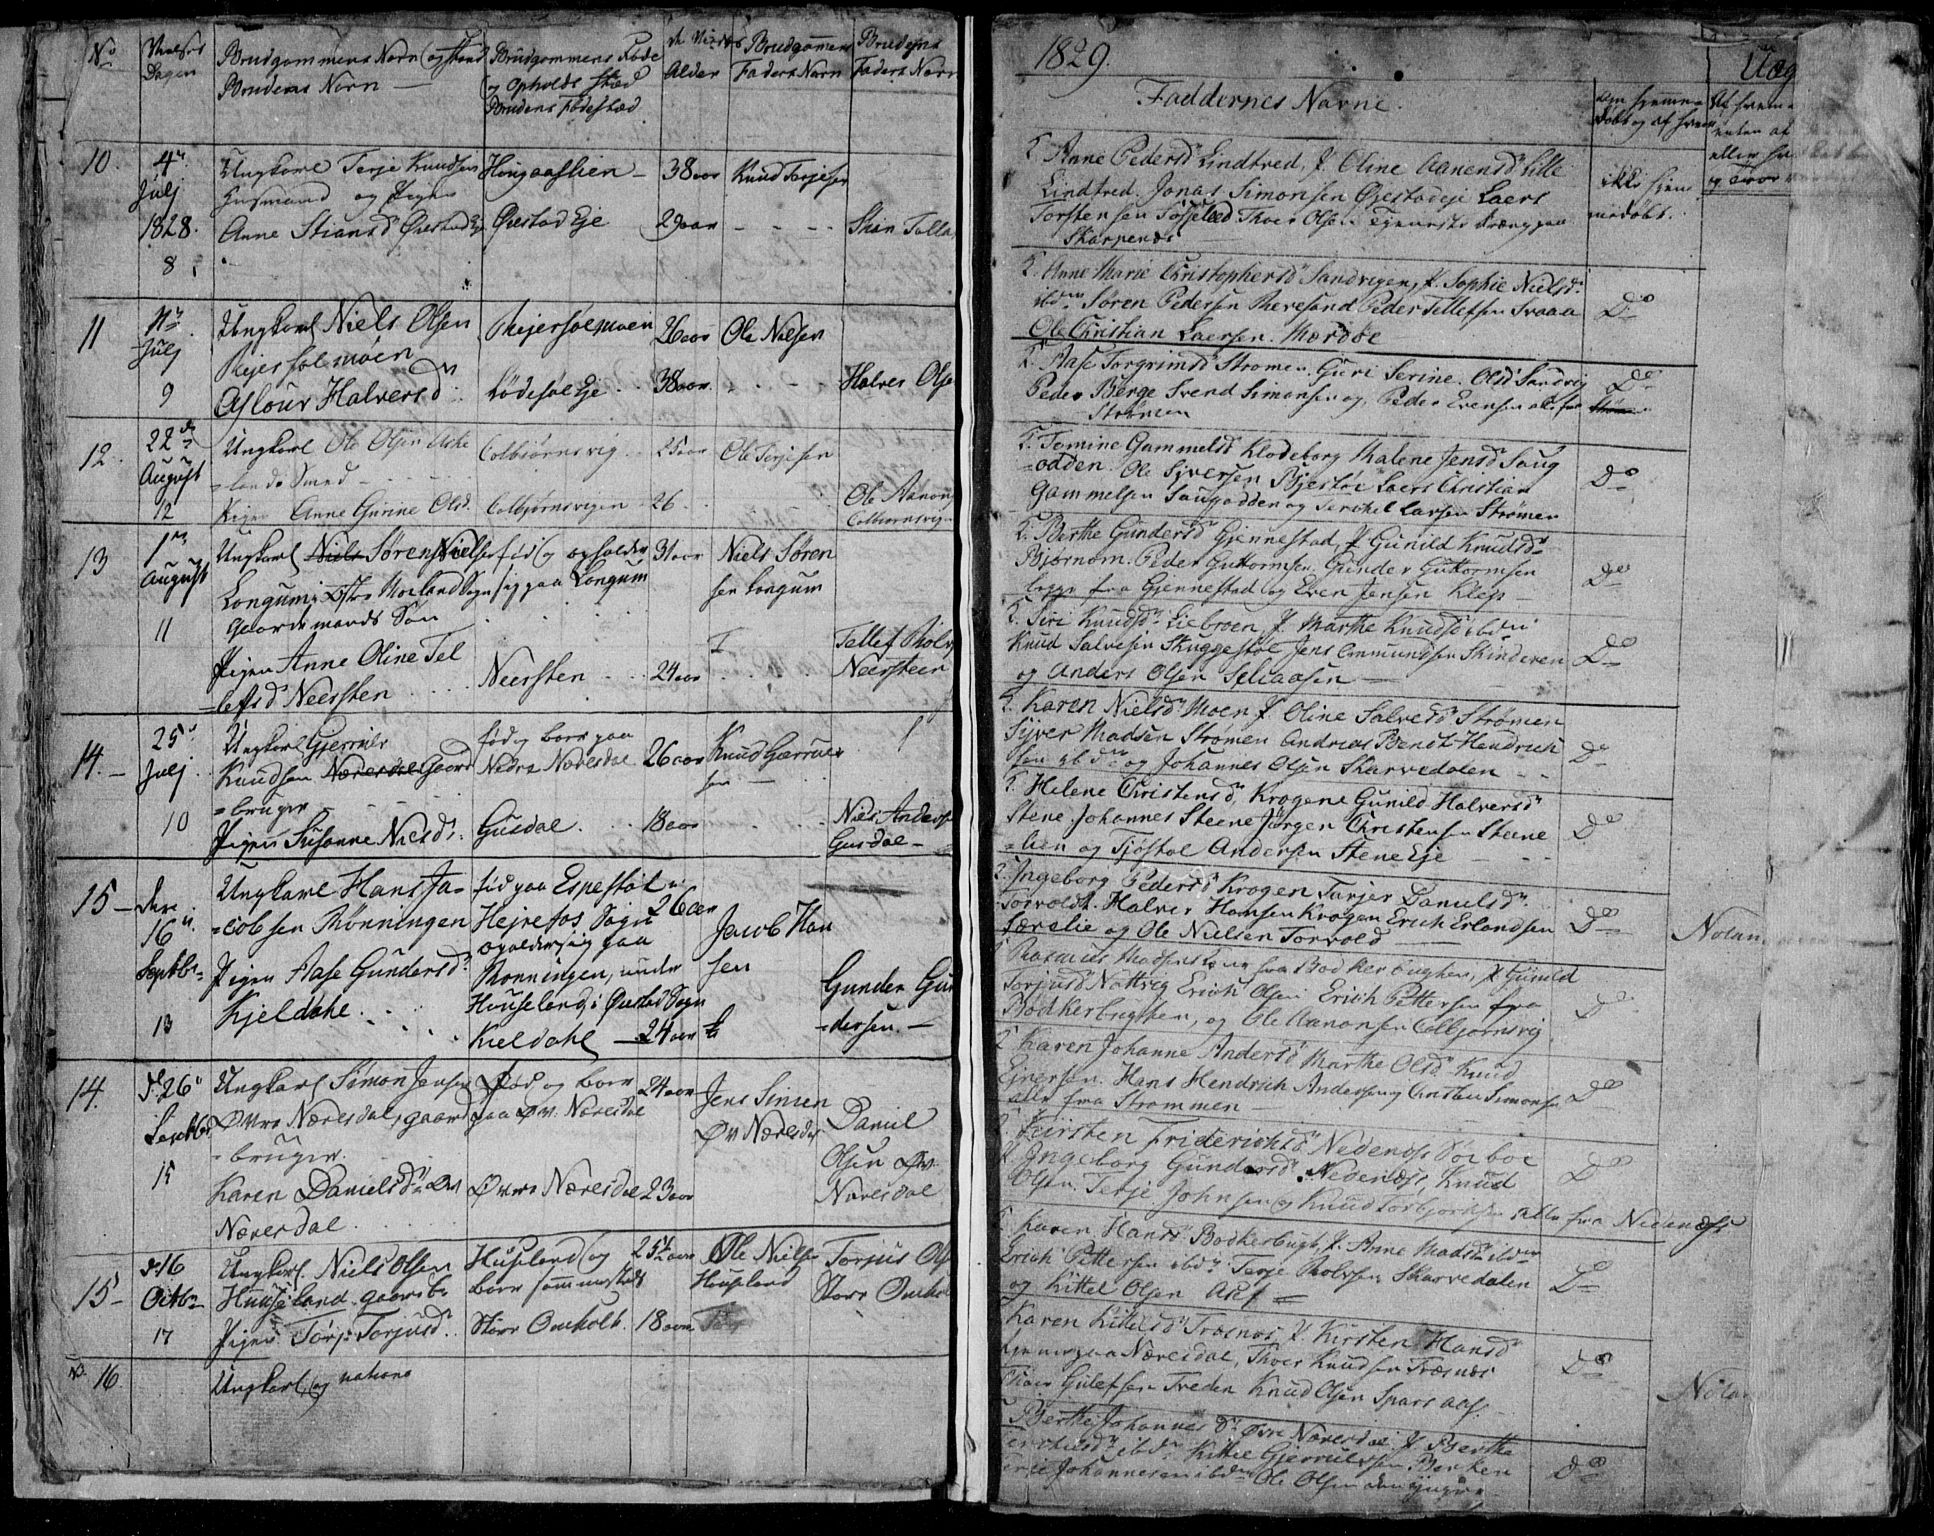 No
Dagen
Brudgommens Navn og Stand
Brudens Navn
Brudgommens Føde
og Opholds Stæd
Brudens fødestæd
Alder
Brudgommens
Faders Navn
Brudens
Faders Navn
10.
4de
Julj
1828.
8
Ungkarl Terje Knudsen
Husmand og Pigen
Anne Stiansd Øiestad Eje
Øiestad Eje
38 aar
29 aar
Knud Terjesen
Stian Talla
11
11te
Julj
9
Ungkarl Niels Olsen
Rejersølmoen
Aslour Halversd
Rejersølmoen
Lødesøl Eje
26 aar
38 aar
Ole Nielsen
Halver Olse
12.
22de
August
12
Ungkarl Ole Olsen Aske
=land Smed
Pigen Anne Gurine Olsd.
Colbiørnsvig
Colbjørnsvigen
25 aar
26
Ole Terjesen
Ole Aanons
Colbiørnsvign
13
1ste
August
11
Ungkarl Niels Søren Nielsen
Longum i Østre Moland Sogn
Gaardmands Søn
Pigen Anne Oline Tel
=lefsd Neersten
fød og opholder
sig paa Longum
Neersten
31 aar
24 aar
Niels Søren
sen Longum
Tellef Rolv
Neersteen
14.
25de
Julj
10
Ungkarl Gjerruls
Knudsen Næresdal Gaard
=bruger
Pigen Susanne Nielsd.
fød og boer paa
Nedre Næresdal
Gusdal
26 aar
18 aar
Knud Gjerruls
sen
Niels Anders
Gusdal
15
den
16de
Septbr
13
Ungkarl Hans Ja=
=cobsen Rønningen
Pigen Aase Gundersd
Kjeldahl
fød paa Espestøl i
Hejrefos Sogn
opholder sig paa
Rønningen, under
Houseland i Øiestad Sogn
Kieldahl
26 aar
24 aar
Jacob Han
sen
Gunder Gun
=dersen
14.
d. 26de
Septbr
15
Ungkarl Simon Jensen
Øvre Næresdal, gaard
=bruger.
Karen Danielsd Øv
Næresdal
Fød og boer
paa Øv. Næresdal
Øvre Næresdal
24 aar
23 aar
Jens Simen
Øv Næresdal
Daniel
Olsen Øv.
Næresdal
15
d. 16
Octbr
17
Ungkarl Niels Olsen
Huuseland gaardb
Pigen Torj Torjusd
Huseland og
boer sammesteds
Store Omholt
25½ aar
18 aar
Ole Nielsen
Houseland
Torjus Ols
Store Omhol
No. 16
Ungkarl og
1829.
Faddernes Navne.
om hjemme=
døbt og af hvem
Uæg
Af hvem
eller
Anne Pedersd Lindtved, P. Oline Aanensd Lille
Lindtved. Jonas Simonsen Øiestadeje Laers
Torstensen Tøsselød Thoer Olsen Tjeneste dræng paa
Skarpenæs
ikke hjem
medøbt.
Anne Marie Christophersd Sandvigen, P. Sophie Nielsd
ibdm Søren Pedersen Revesand Peder Tellefsen Svaaa
Ole Christian Laersen. Mærdøe
Do
Aase Torgrimsd Strømen. Guri Serine. Olsd Sandvig
Peder Berge Svend Simonsen og Peder Evensen alle fra
Strømen
Do
Tomine Gammelsd Klodeborg Malene Jensd Saug
=odden. Ole Syversen Bjestøl Laers Christian
Gammelsen Saugodden og Terchel Larsen Strømen
Do
Berthe Gundersd Gjennestad, P. Gunild Knudsd
Bjørnom. Peder Guttormsen, Gunder Guttormsen
begge fra Gjennestad og Even Jensen Klep
Do
Siri Knudsd Liebroen, P. Marthe Knudsd ibdm
Knud Salvesen Skuggestøl Jens Omundsen Skinderen
og Anders Olsen Seliaasen
Do
Karen Nielsd Moen P. Oline Salvesd Strømen
Syver Madsen Strømen Andreas Bendt Hendrich
sen ibdm og Johannes Olsen Skarvedalen
Do
Helene Christensd, Krogene Gunild Halversd
Stene. Johannes Steene Jørgen Christensen Steene
=lien og Tjøstol Andersen Stene Eje
Do
Ingeborg Pedersd Krogen Tarjer Danielsd
Torvold. Halver Hansen Krogen Erich Erlandsen
Færelie og Ole Nielsen Torvold
Do
Notan
Bødkerbugten, P. Gunild
Torjusd Nattvig Erich Olsen Erich Pettersen fra
Bødkerbugten, og Ole Aanonsen Colbjørnsvig
Do
Karen Johanne Andersd Marthe Olsd Knud
Ejnersen. Hans Hendrich Andersen og Christen Simonsen
alle fra Strømmen
Do
Kirsten Friderichsd Nedenæs Søeboe
P. Ingeborg Gundersd Nedenæs, Knud
Olsen. Terje Johnsen og Knud Torbjørnsen alle fra Nedenæs
Do
Karen Hansd Bødkerbugt, P. Anne Madsd ibdm
Erich Pettersen ibdm Terje Rolvsen Skarvedalen
og Kittel Olsen Ask
Do
Karen Kittelsd Træsnæs, P. Kirsten Hansd
paa Næresdal, Thoer Knudsen Træsnæs
Thoer Gulefsen Treden Knud Olsen Spars aas
Do
Nota
Berthe Johannesd Øvre Næresdal P. Berthe
ibdm Kittel Gjerrulsen Berken
Johannesen ibdm Ole Olsen den yngre
Do